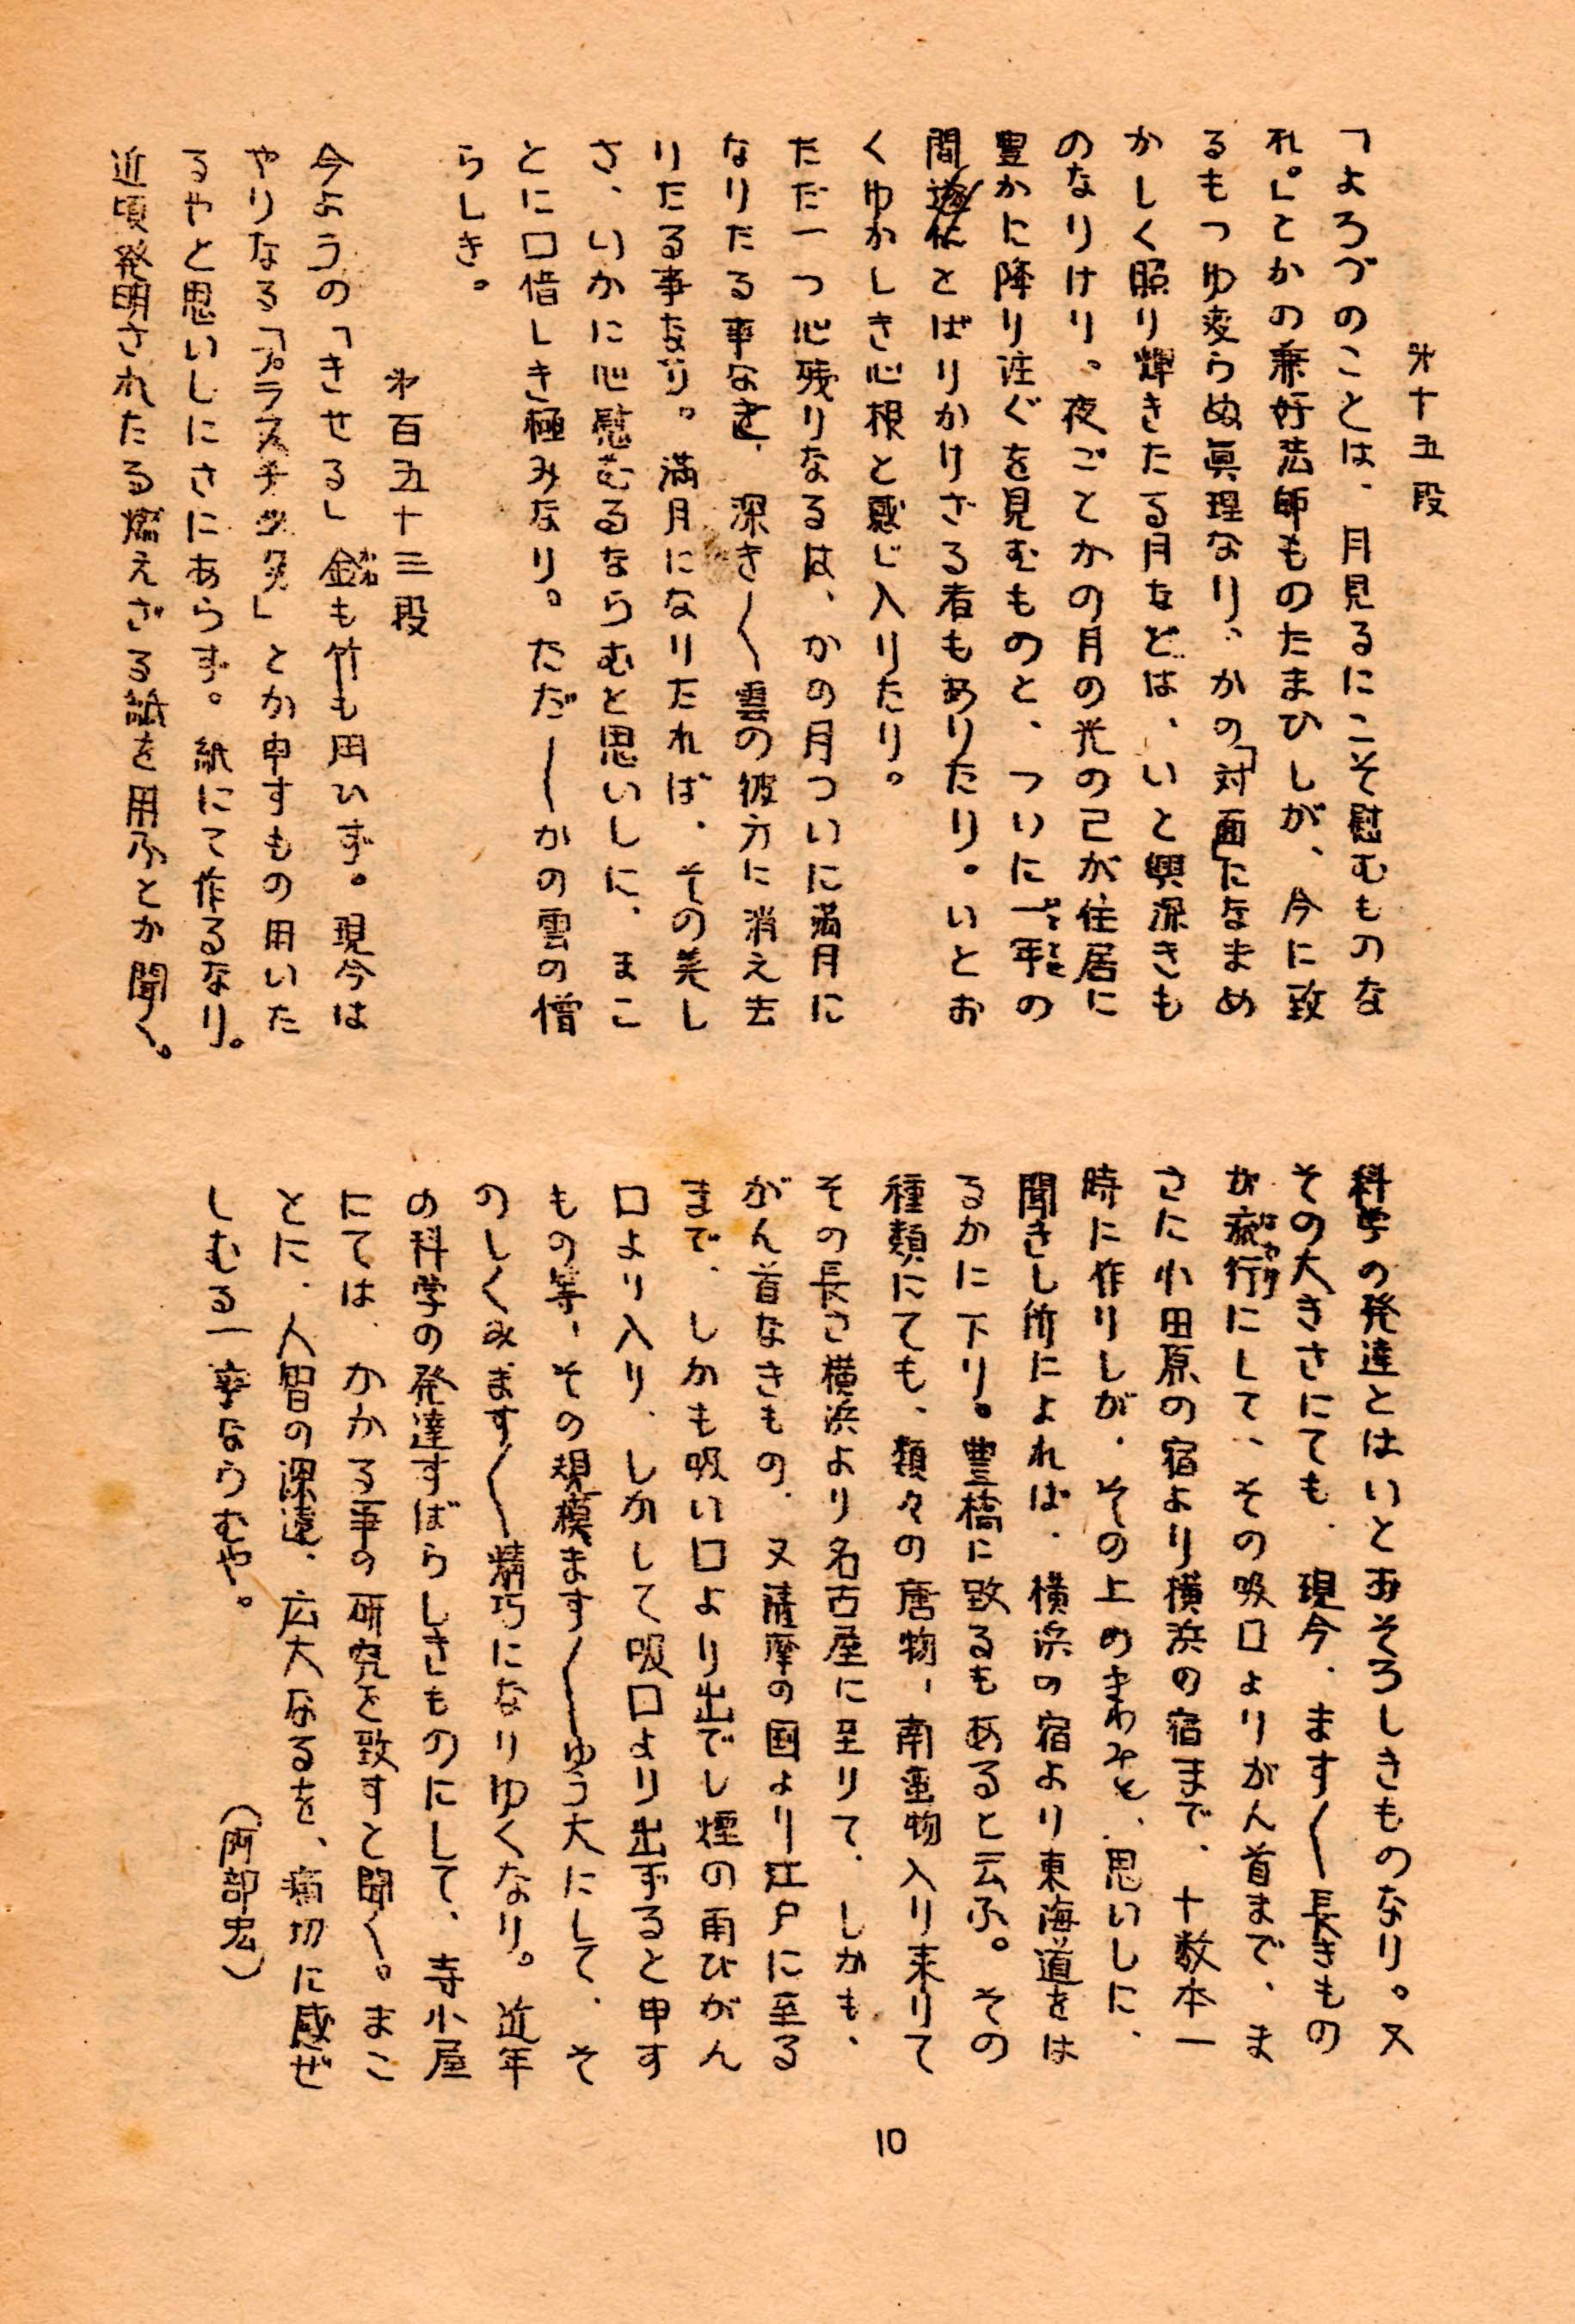 才十五段
「よろづのことは、月見るにこそ慰むものな
れ。」とかの兼好法師ものたまひしが、今に致
るもつゆ変らぬ眞理なり、かの「対面」になまめ
かしく照り輝きたる月などは、いと興深きも
のなりけり。夜ごとかの月の光の己が住居に
豊かに降り注ぐを見むものと、ついに一年の
間とばりかけざる者もありたり。いとお
くゆかしき心根と感じ入りたり。
ただ一つ心残りなるは、かの月ついに満月に
なりたる事なき、深き〳〵雲の彼方に消え去
りたる事なり。満月になりたれば、その美し
さ、いかに心慰むるならむと思いしに、まこ
とに口惜しき極みなり。ただ〳〵かの雲の憎
らしき。
才百五十三段
今ようの「きせる」金も竹も用ひず。現今は
やりなる「プラスチック」とか申すもの用いた
るやと思いしにさにあらず。紙にて作るなり。
近頃発明されたる燃えざる紙を用ふとか聞く。
科学の発達とはいとおそろしきものなり。又
その大きさにても、現今、ます〳〵長きもの
が流行にして、その吸口よりがん首まで、ま
さに小田原の宿より横浜の宿まで、十数本一
時に作りしが、その上のきわみと、思いしに、
聞きし所によれば、横浜の宿より東海道をは
るかに下り。豊橋に致るもあると云ふ。その
種類にても、類々の唐物、南蛮物入り来りて
その長さ横浜より名古屋に至りて、しかも、
がん首なきもの、又薩摩の国より江戸に至る
まで、しかも吸い口より出でし煙の再びがん
口より入り、しかして吸口より出ずると申す
もの等、その規模ます〳〵ゆう大にして、そ
のしくみます〳〵精巧になりゆくなり。近年
の科学の発達すばらしきものにして、寺小屋
にては、かかる事の研究を致すと聞く。まこ
とに、人智の深遠、広大なるを、痛切に感ぜ
しむる一事ならむや。
(阿部宏)
10